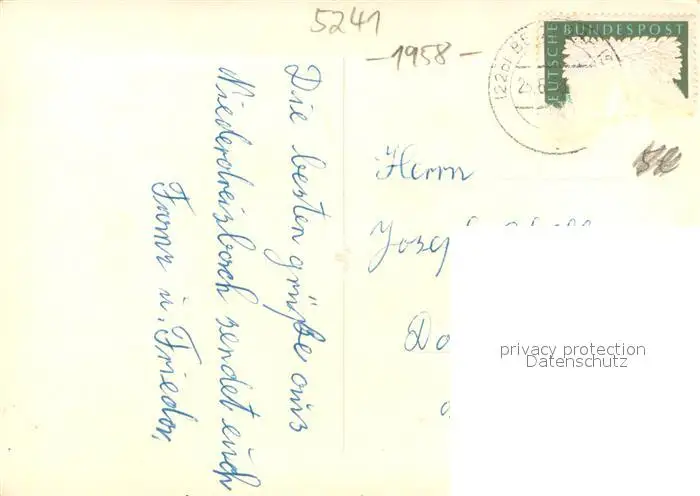 5241
-1958-
DEUTSCHE BUNDESPOST
Die besten grüße aus
Niederdreisbach sendet euch
Franz u. Frieda.
Herrn
Josef
privacy protection
Datenschutz